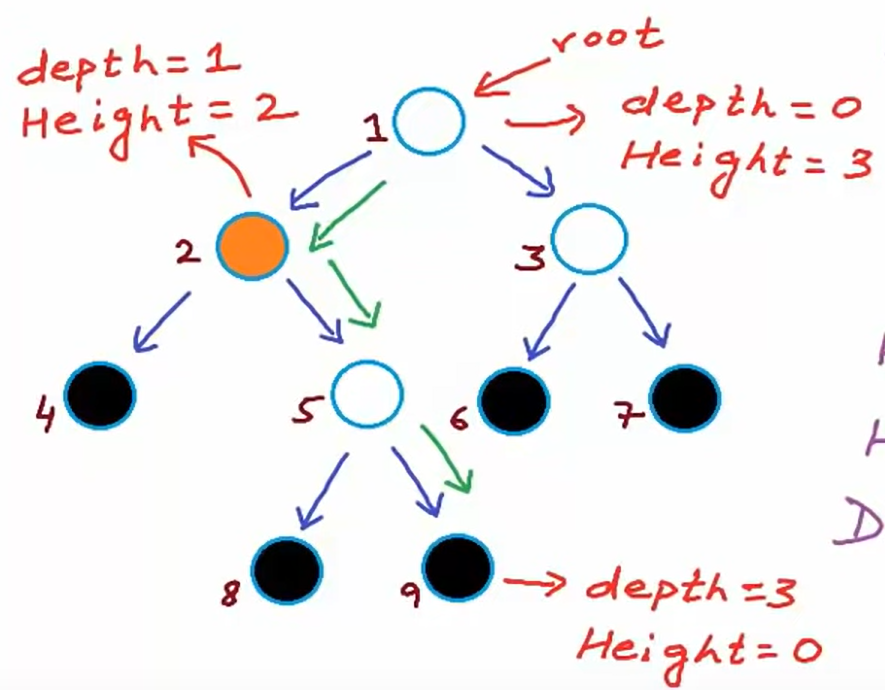 root
depth = 1
Height = 2
1
depth = 0
Height = 3
2
3
4
5
6
7
D
8
9
depth = 3
Height = 0